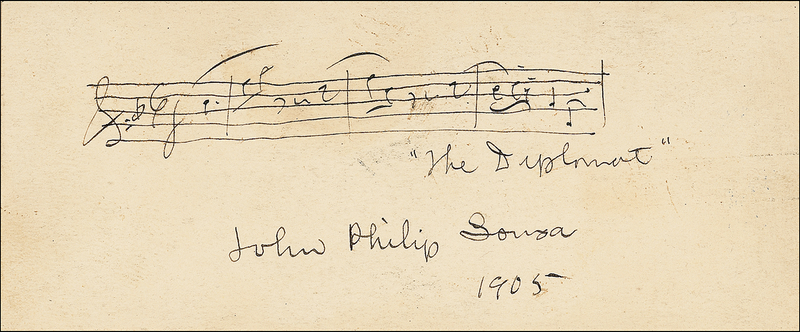 "The Diplomat"
John Philip Sousa
1905